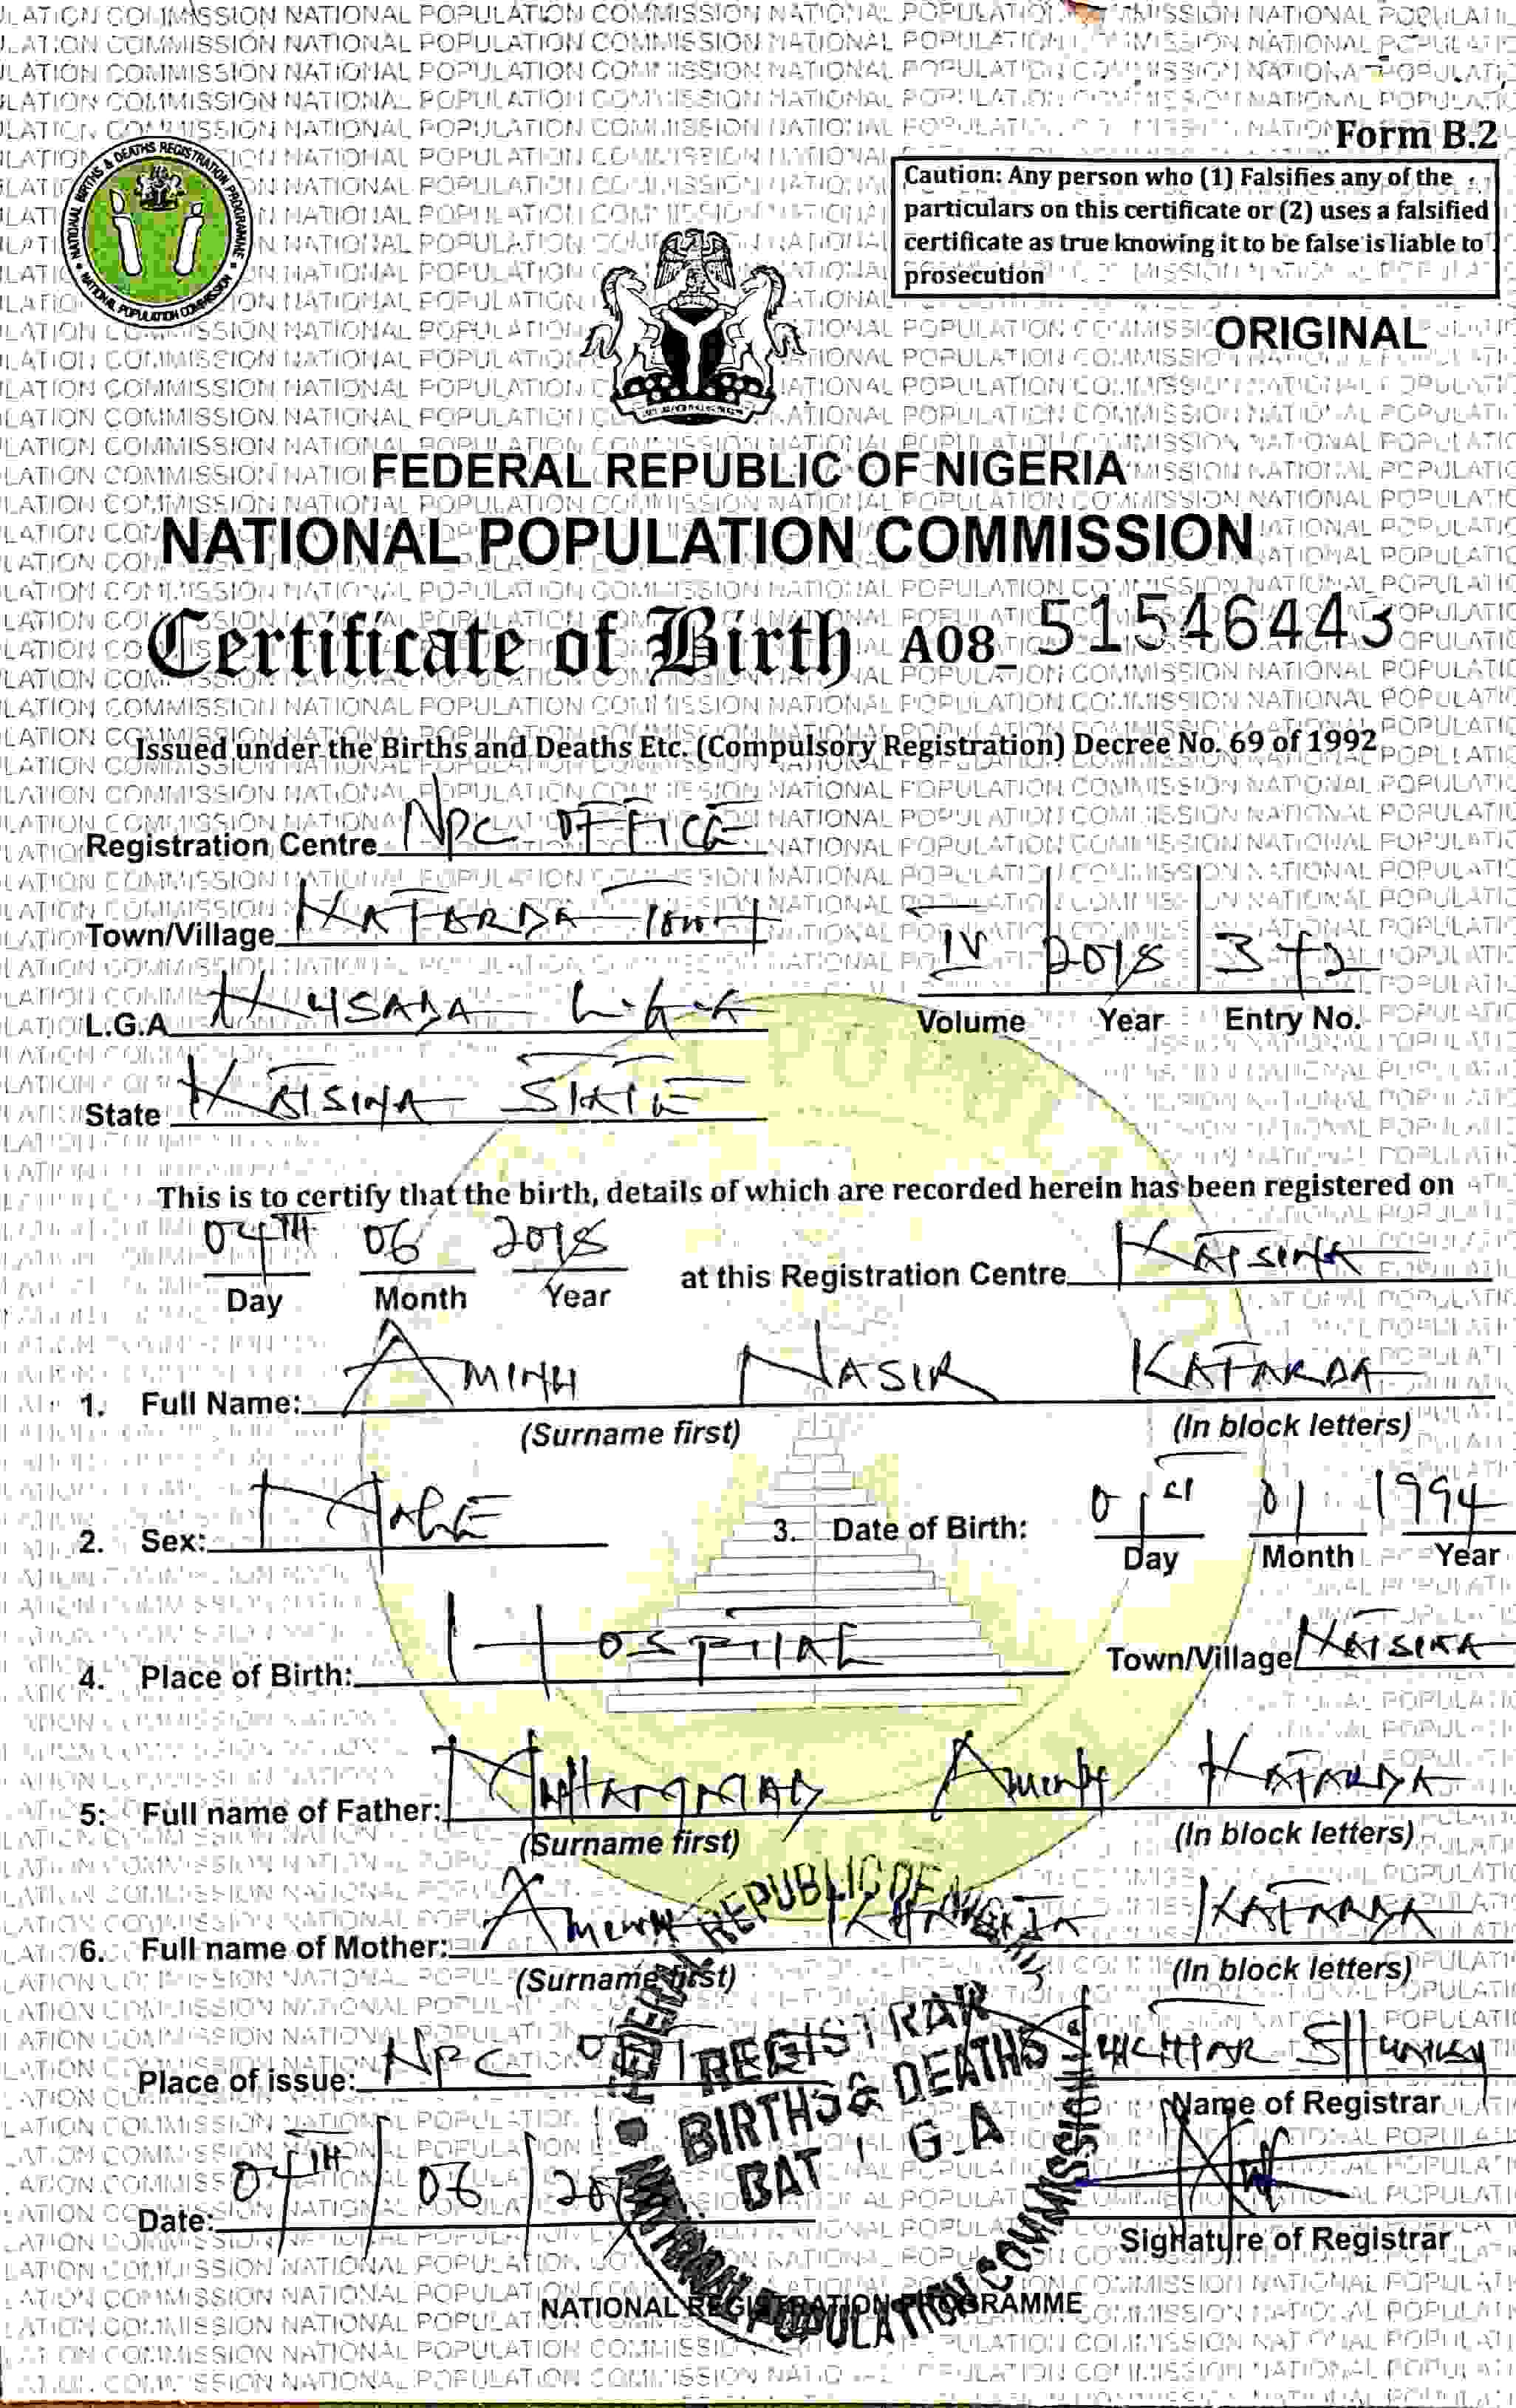 Form B.2
Caution: Any person who (1) Falsifies any of the
particulars on this certificate or (2) uses a falsified
certificate as true knowing it to be false is liable to
prosecution
NATIONAL BIRTHS & DEATHS REGISTRATION PROGRAMME
NATIONAL POPULATION COMMISSION
ORIGINAL
FEDERAL REPUBLIC OF NIGERIA
NATIONAL POPULATION COMMISSION
Certificate of Birth A08_ 51546443
Issued under the Births and Deaths Etc. (Compulsory Registration) Decree No. 69 of 1992
Registration Centre NPC OFFICE
Town/Village KAFARDA TOWN
L.G.A KUSADA L.G.A
IV 2018 372
Volume Year Entry No.
State KATSINA STATE
This is to certify that the birth, details of which are recorded herein has been registered on
04TH 06 2018 at this Registration Centre KATSINA
Day Month Year
1. Full Name: AMINU NASIR KAFARDA
(Surname first) (In block letters)
2. Sex: MALE 3. Date of Birth: 01st 01 1994
Day Month Year
4. Place of Birth: HOSPITAL Town/Village KATSINA
5: Full name of Father: MUHAMMAD Aminu KAFARDA
(Surname first) (In block letters)
6. Full name of Mother: Aminu KAFARDA
(Surname first) (In block letters)
Place of issue: NPC
Name of Registrar
Date: 04TH 06
Signature of Registrar
FEDERAL REPUBLIC OF NIGERIA
REGISTRAR
BIRTHS & DEATHS
BAT L.G.A
NATIONAL POPULATION COMMISSION
NATIONAL REGISTRATION PROGRAMME